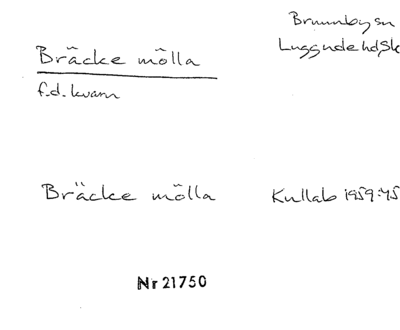 Brunnby sn
Luggude hd, Sk
Bräcke mölla
f.d. kvarn
Bräcke mölla
Kullab 1959:45
Nr 21750